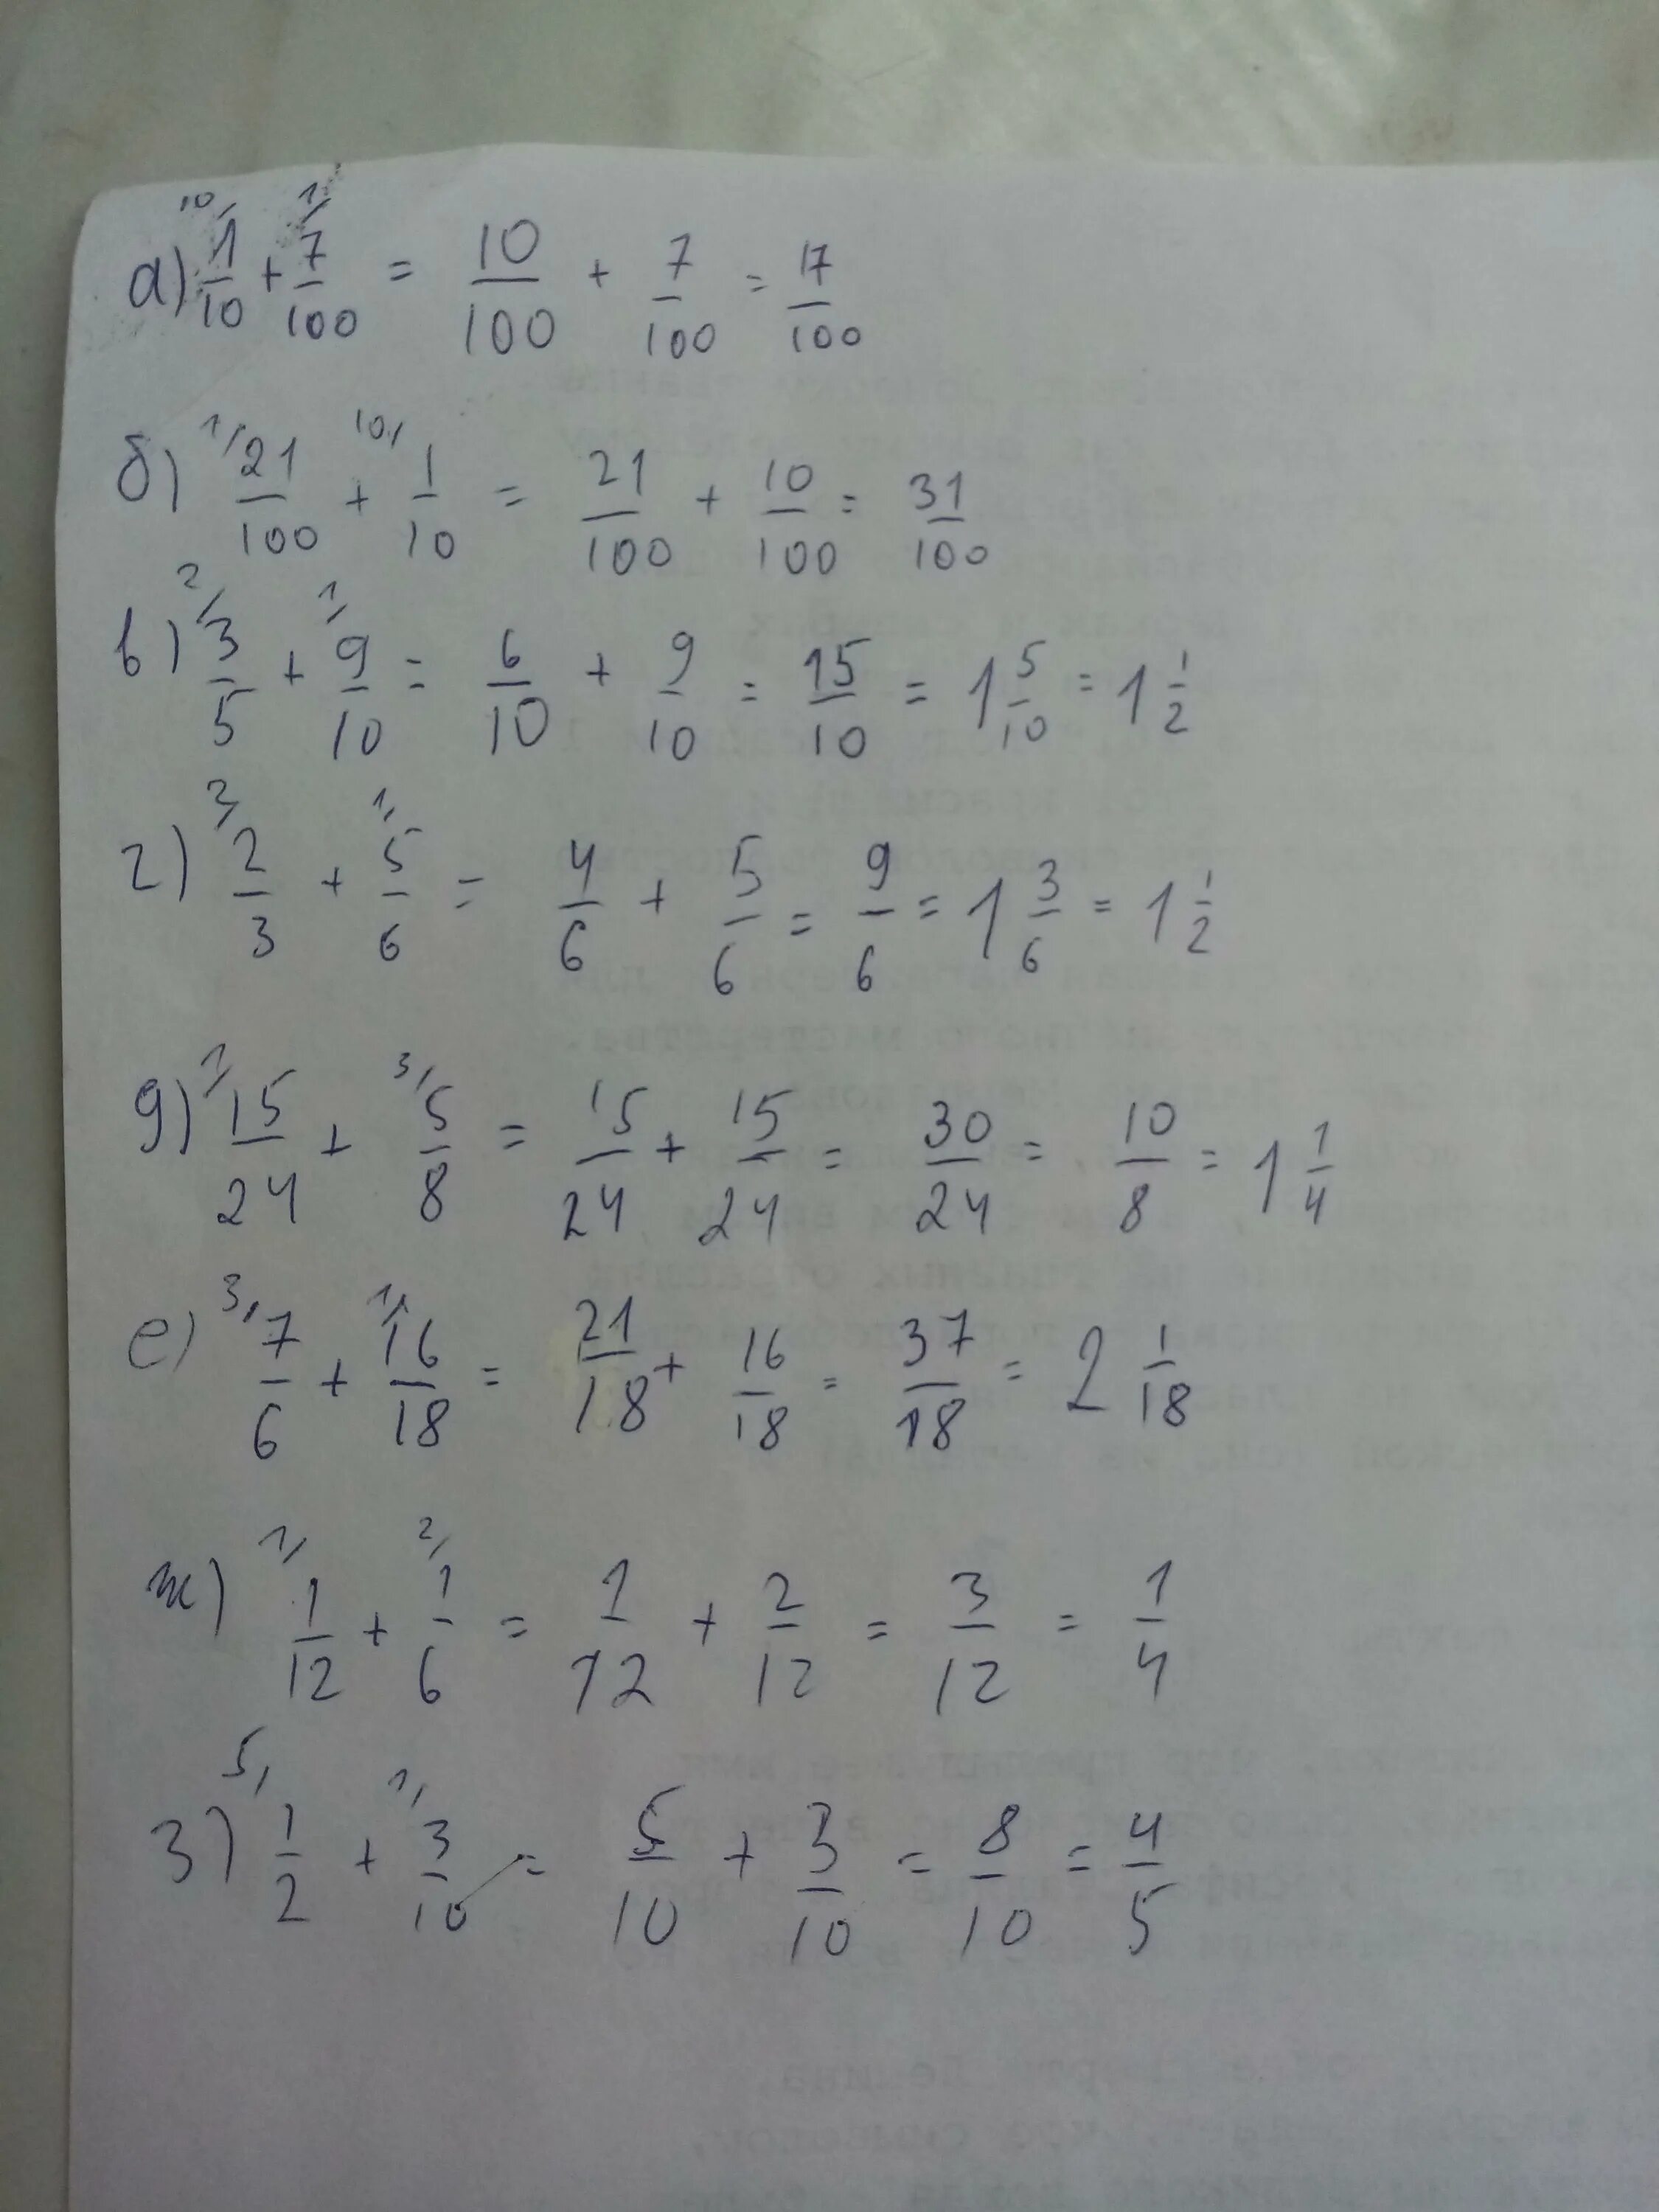 а) 10/ 1/10 + 1/ 7/100 = 10/100 + 7/100 = 17/100
б) 1/ 21/100 + 10/ 1/10 = 21/100 + 10/100 = 31/100
в) 2/ 3/5 + 1/ 9/10 = 6/10 + 9/10 = 15/10 = 1 5/10 = 1 1/2
г) 2/ 2/3 + 1/ 5/6 = 4/6 + 5/6 = 9/6 = 1 3/6 = 1 1/2
д) 1/ 15/24 + 3/ 5/8 = 15/24 + 15/24 = 30/24 = 10/8 = 1 1/4
е) 3/ 7/6 + 1/ 16/18 = 21/18 + 16/18 = 37/18 = 2 1/18
ж) 1/ 1/12 + 2/ 1/6 = 1/12 + 2/12 = 3/12 = 1/4
з) 5/ 1/2 + 1/ 3/10 = 5/10 + 3/10 = 8/10 = 4/5